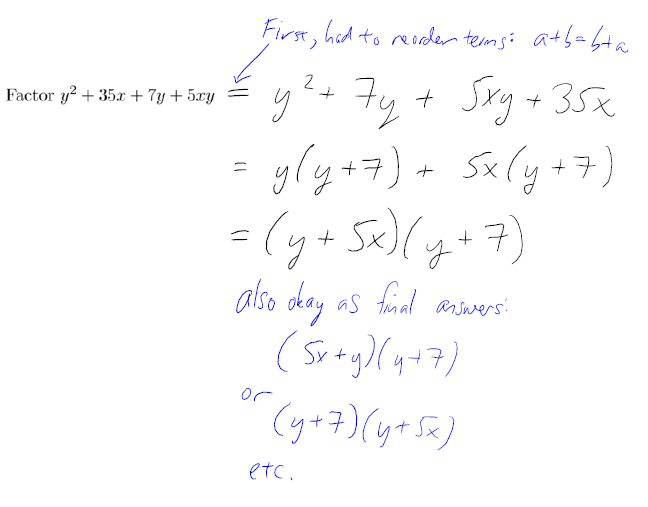 First, had to reorder terms: a+b=b+a
Factor y² + 35x + 7y + 5xy = y² + 7y + 5xy + 35x
= y(y+7) + 5x(y+7)
= (y + 5x)(y+7)
also okay as final answers:
(5x+y)(y+7)
or
(y+7)(y+5x)
etc.